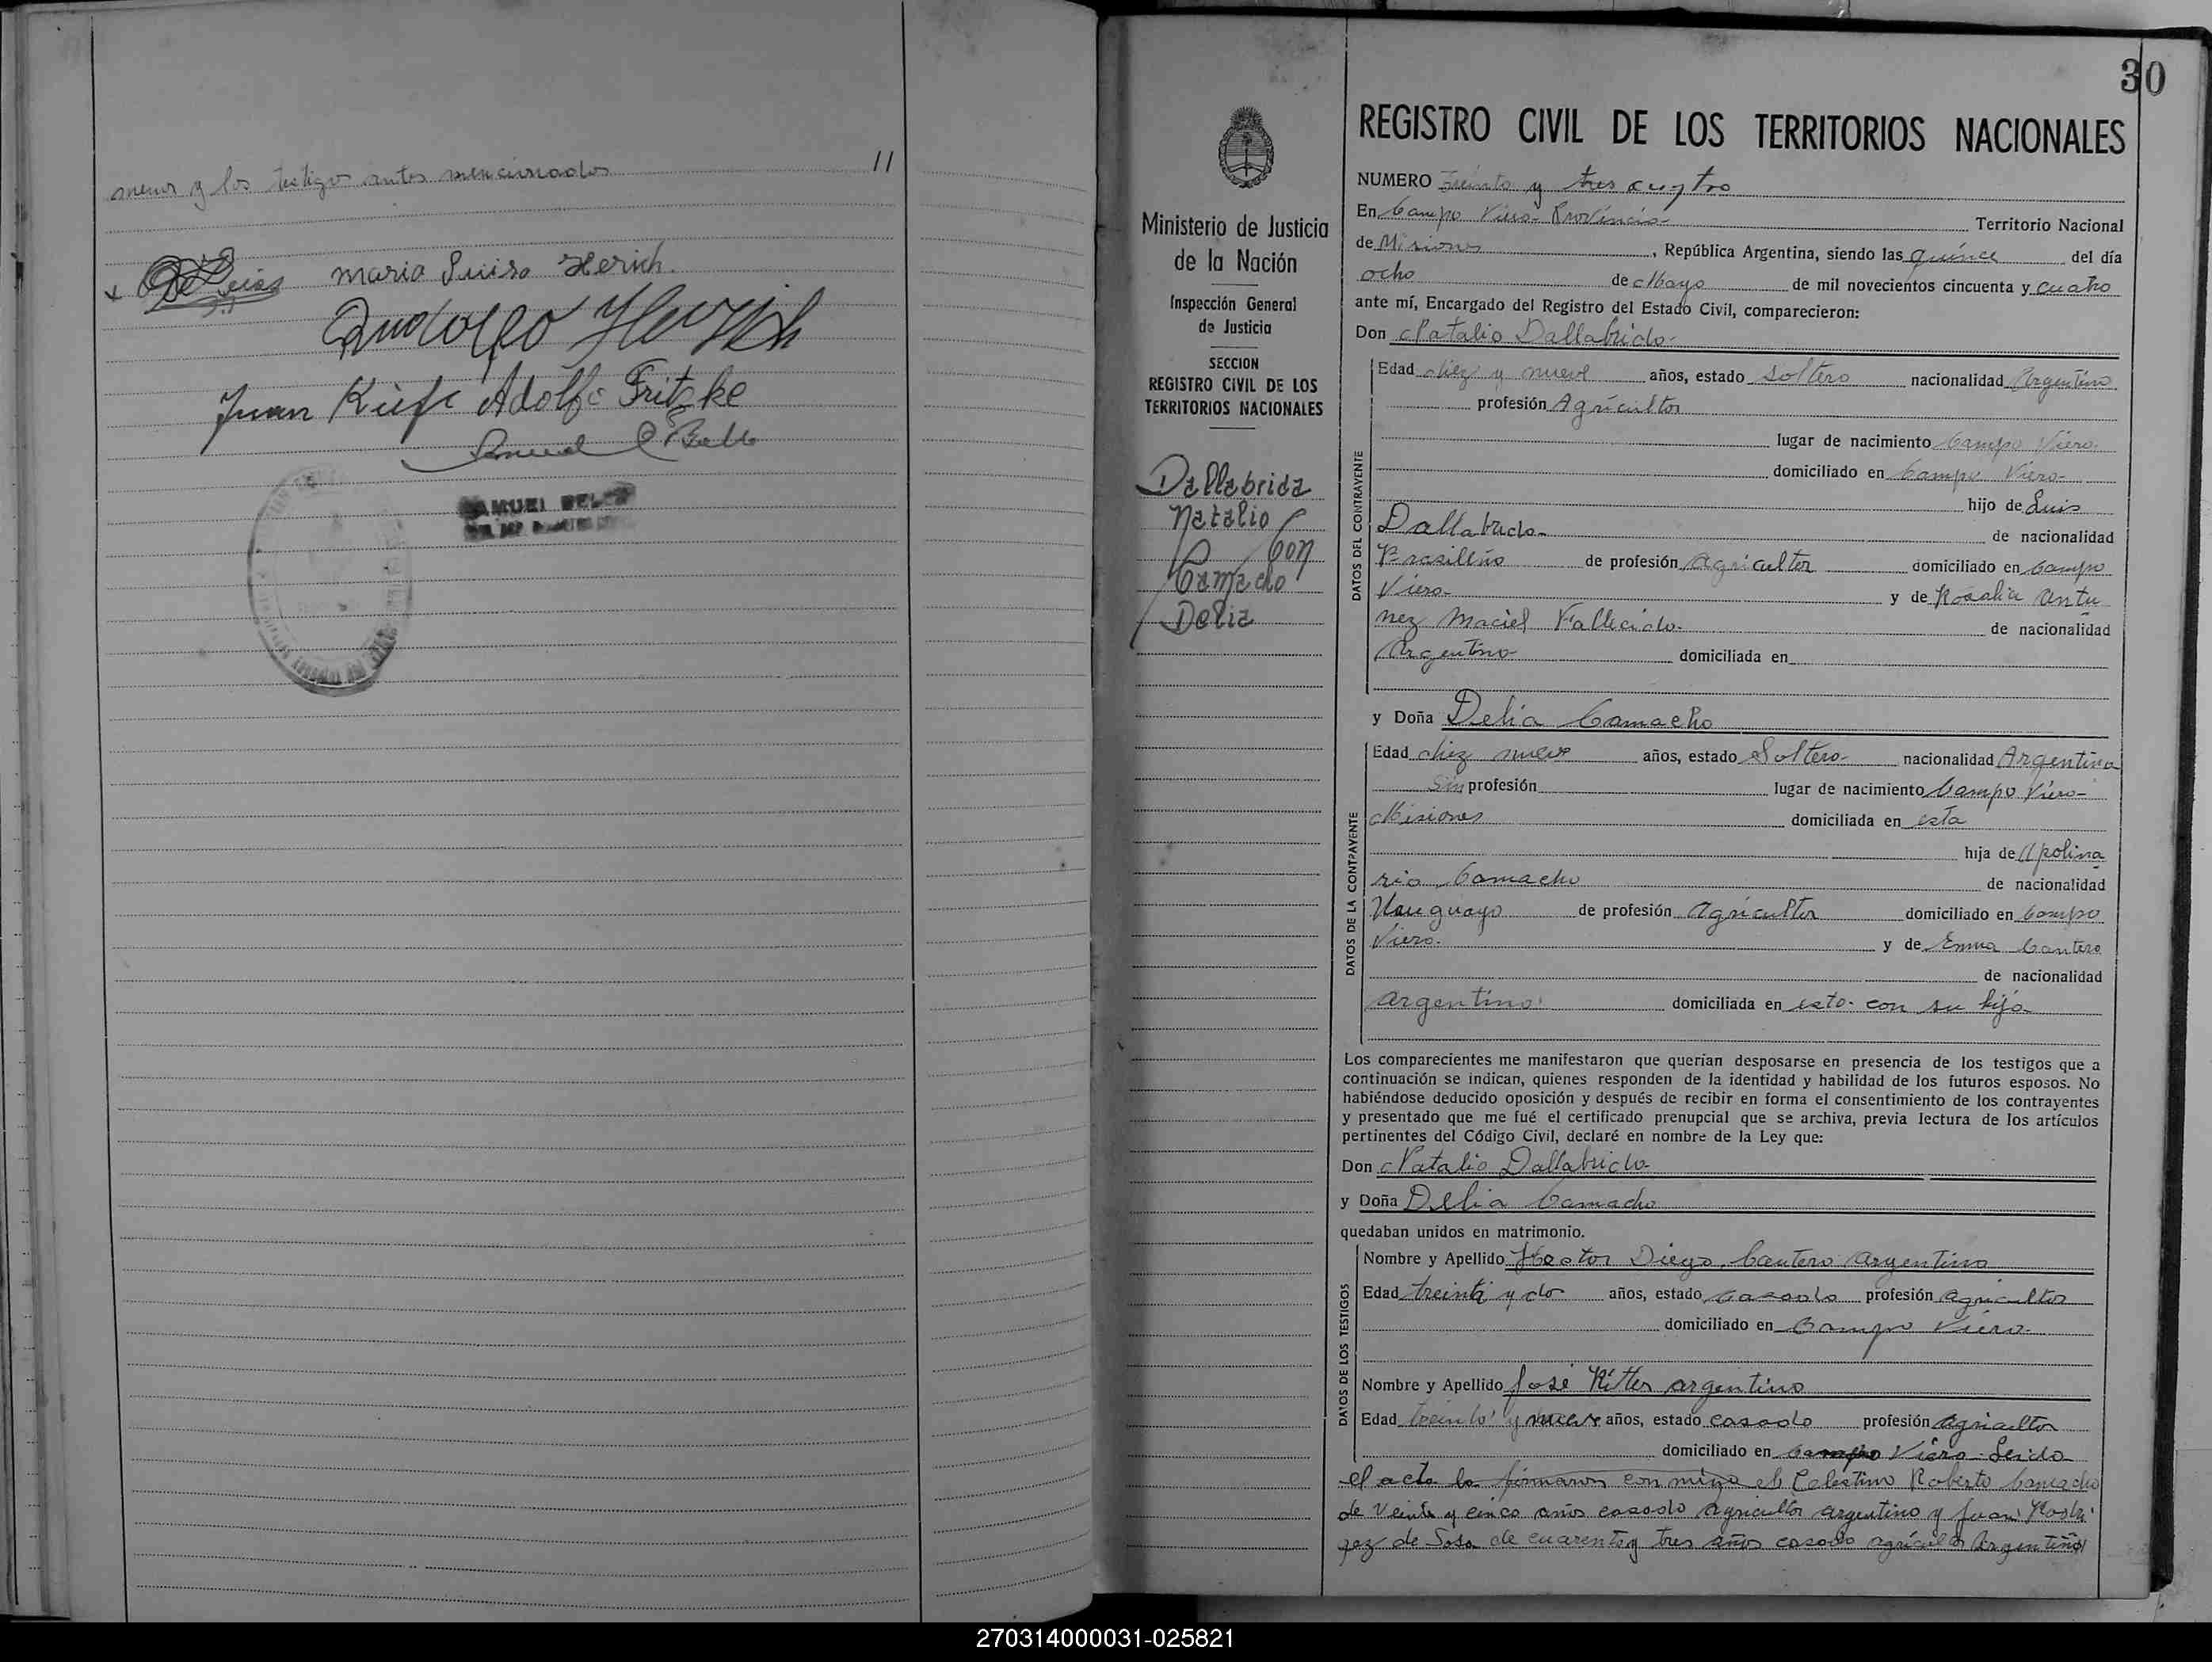 11
menor y los testigos antes mencionados
Maria Luisa Herich.
Rudolfo Herich
Juan Adolfo Fritzke
SAMUEL
30
Ministerio de Justicia
de la Nación
Inspección General
de Justicia
SECCION
REGISTRO CIVIL DE LOS
TERRITORIOS NACIONALES
Dallabrida
Natalio
Con
Camacho
Delia
REGISTRO CIVIL DE LOS TERRITORIOS NACIONALES
NUMERO Treinta y tres cuatro
En Campo Viera- Provincia- Territorio Nacional
de Misiones, República Argentina, siendo las quince del día
ocho de Mayo de mil novecientos cincuenta y cuatro
ante mí, Encargado del Registro del Estado Civil, comparecieron:
Don Natalio Dallabrida-
DATOS DEL CONTRAYENTE
Edad diez y nueve años, estado soltero nacionalidad Argentino
profesión Agricultor
lugar de nacimiento Campo Viera.
domiciliado en Campo Viera-
hijo de Luis
Dallabrida- de nacionalidad
Brasilero de profesión agricultor domiciliado en Campo
Viera- y de Rosalia Antu
nez Maciel Fallecida. de nacionalidad
Argentina domiciliada en
y Doña Delia Camacho
DATOS DE LA CONTRAYENTE
Edad diez nueve años, estado Soltera- nacionalidad Argentina
Sin profesión lugar de nacimiento Campo Viera-
Misiones domiciliada en esta
hija de Apolina
rio Camacho de nacionalidad
Uruguayo de profesión Agricultor domiciliado en Campo
Viera. y de Emma Cantero
de nacionalidad
argentina domiciliada en esta- con su hija
Los comparecientes me manifestaron que querían desposarse en presencia de los testigos que a
continuación se indican, quienes responden de la identidad y habilidad de los futuros esposos. No
habiéndose deducido oposición y después de recibir en forma el consentimiento de los contrayentes
y presentado que me fué el certificado prenupcial que se archiva, previa lectura de los artículos
pertinentes del Código Civil, declaré en nombre de la Ley que:
Don Natalio Dallabrida
y Doña Delia Camacho
quedaban unidos en matrimonio.
DATOS DE LOS TESTIGOS
Nombre y Apellido Hector Diego Cantero Argentino
Edad treinta y dos años, estado casado profesión agricultor
domiciliado en Campo Viera-
Nombre y Apellido José Ritter argentino
Edad treinta y nueve años, estado casado profesión agricultor
domiciliado en Campo Viera- Leida
el acta la firmaron con migo el Celestino Roberto Camacho
de Veinte y cinco años casado agricultor argentino y Juan Rodri
gez de Sosa de cuarenta y tres años casado agricultor Argentino
270314000031-025821